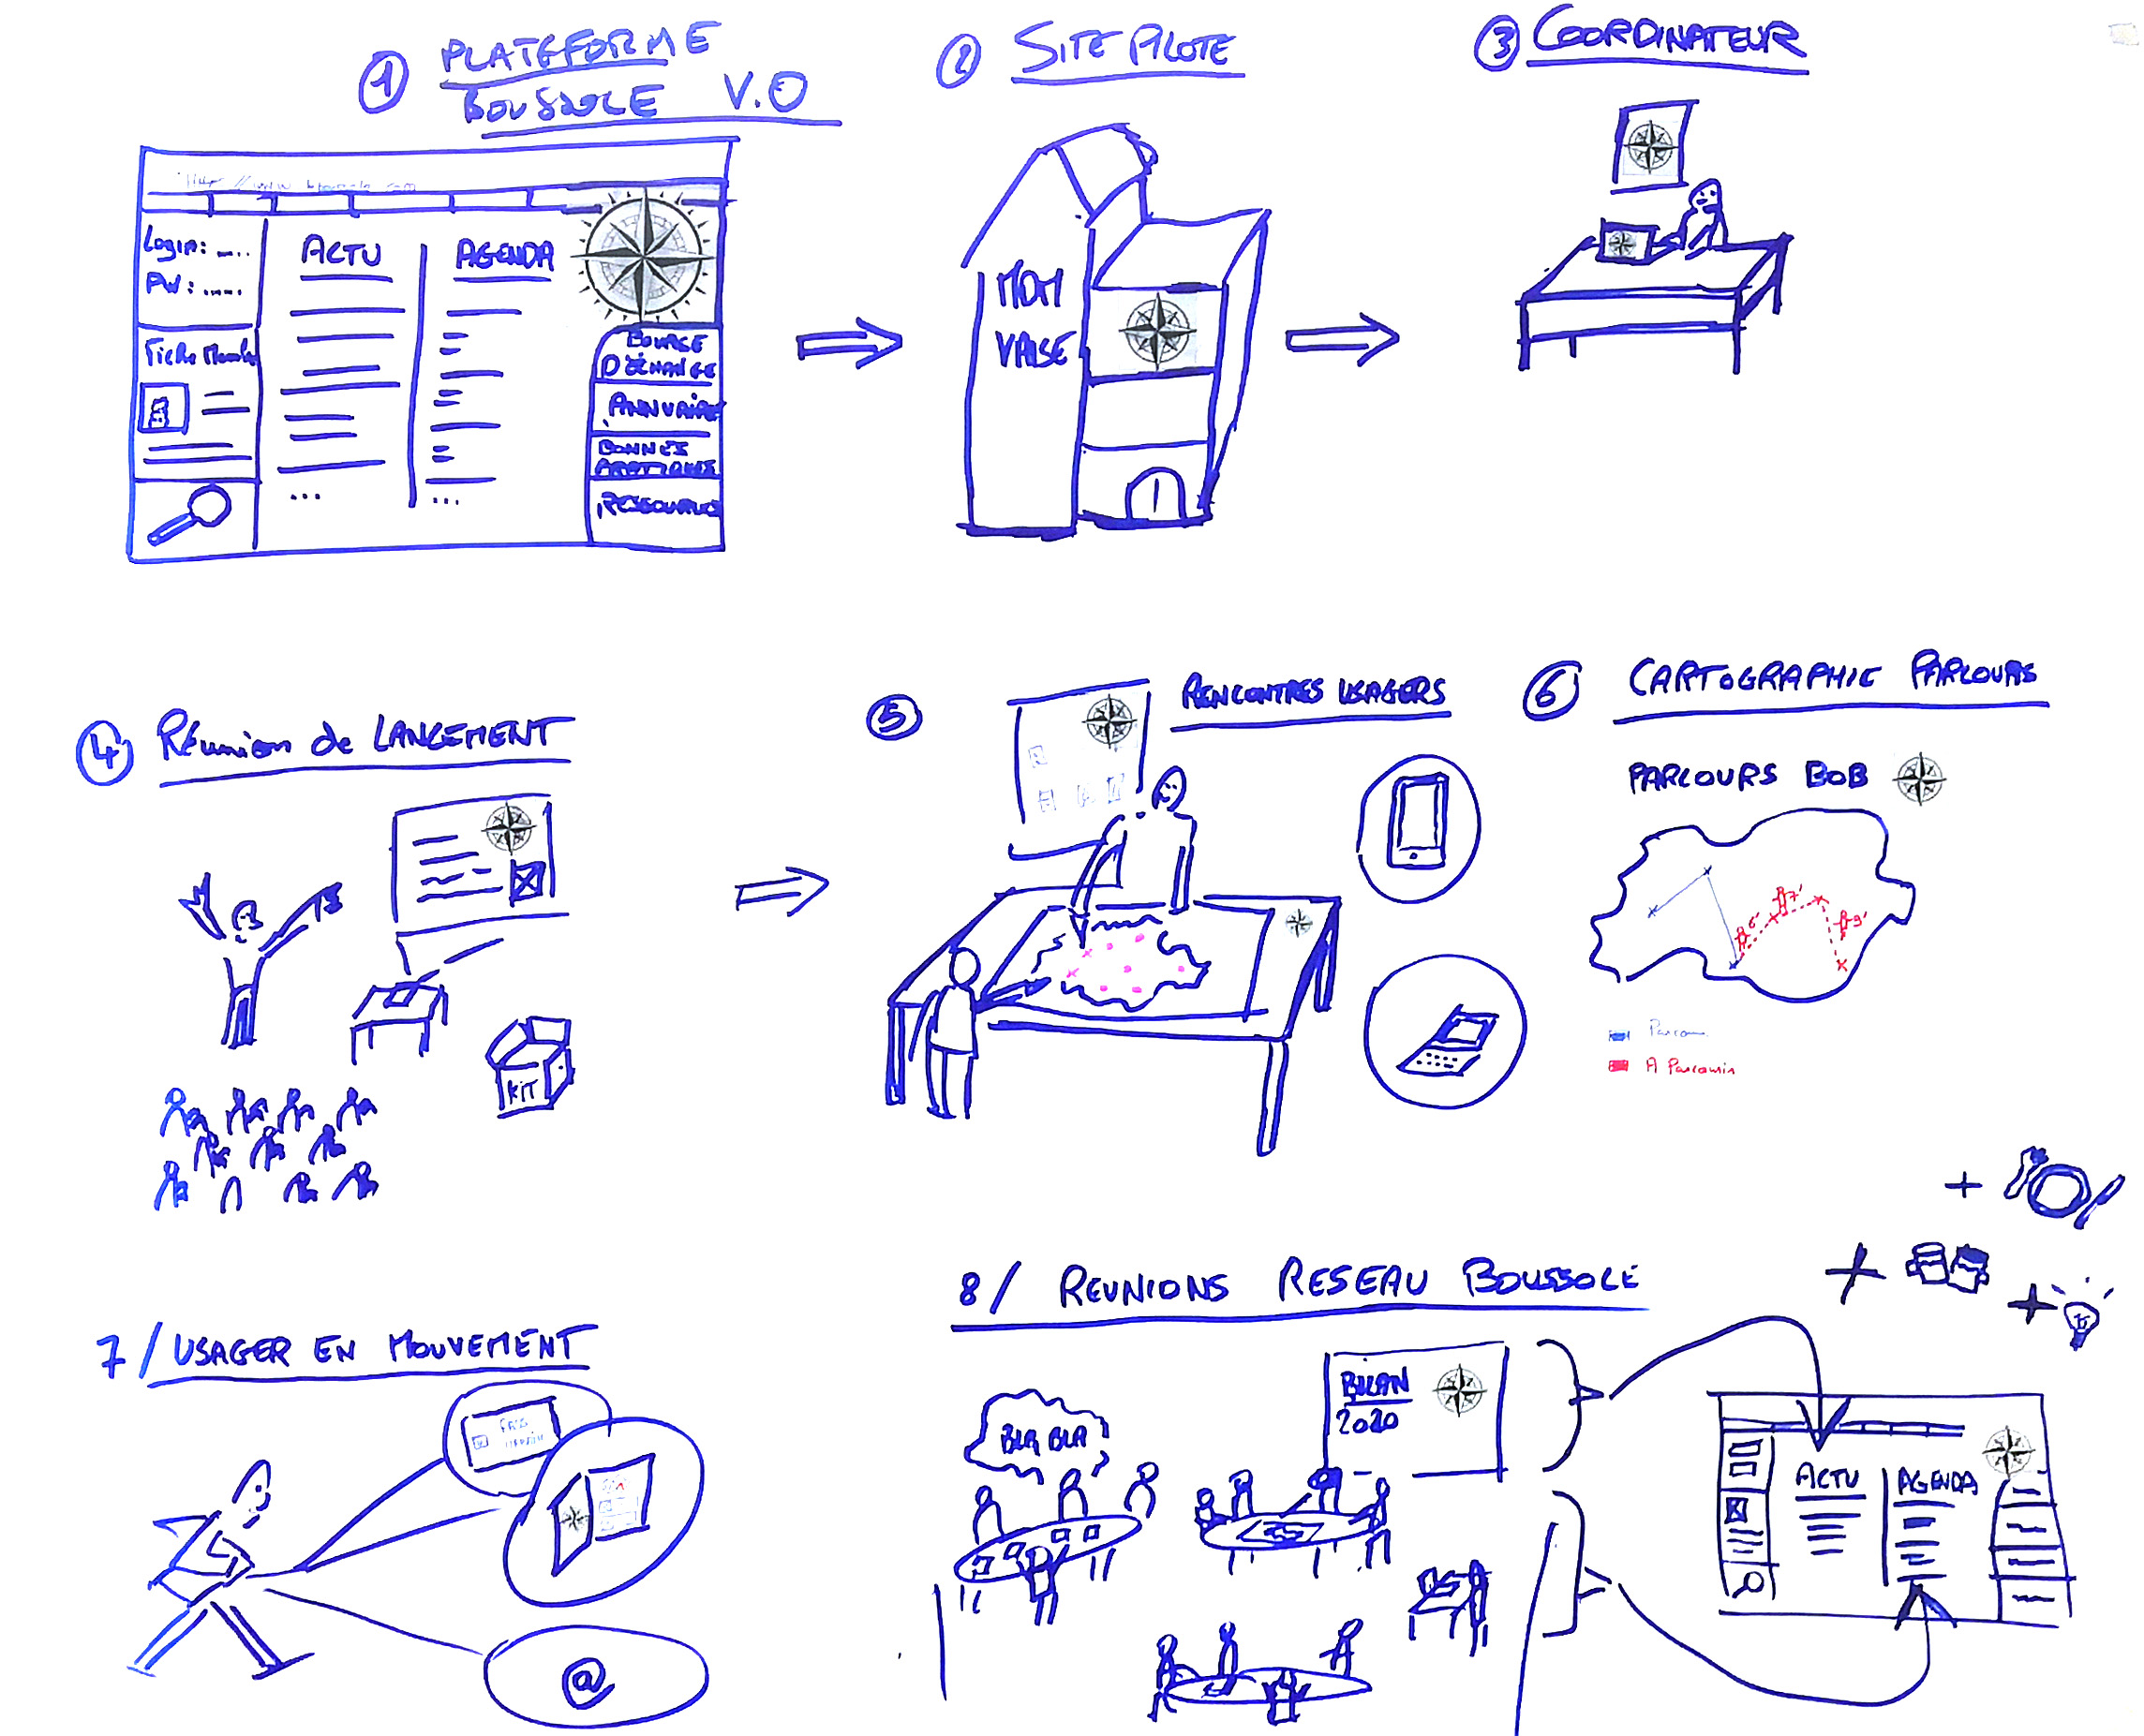 1 PLATEFORME
BOUSSOLE V.0
Login: ....
PW: .....
ACTU
AGENDA
BOURSE
D'ÉCHANGE
ANNUAIRE
BONNES
PRATIQUES
RESSOURCES
...
...
2 SITE PILOTE
MDM
VAISE
3 COORDINATEUR
4 Réunion de LANCEMENT
KIT
5 RENCONTRES USAGERS
6 CARTOGRAPHIE PARCOURS
PARCOURS BOB
6'
7'
9'
7/ USAGER EN MOUVEMENT
@
8/ REUNIONS RESEAU BOUSSOLE
+
+
+
BLA BLA
BILAN
2020
ACTU
AGENDA